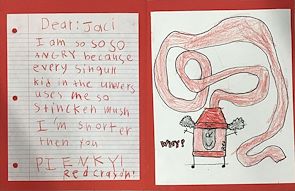 Dear: Jaci
I am so so so
ANGRY because
every singull
kid in the univers
uses me so
stincken mush
I'm shorter
then you
PIENKY!
Red crayon!
WHY?